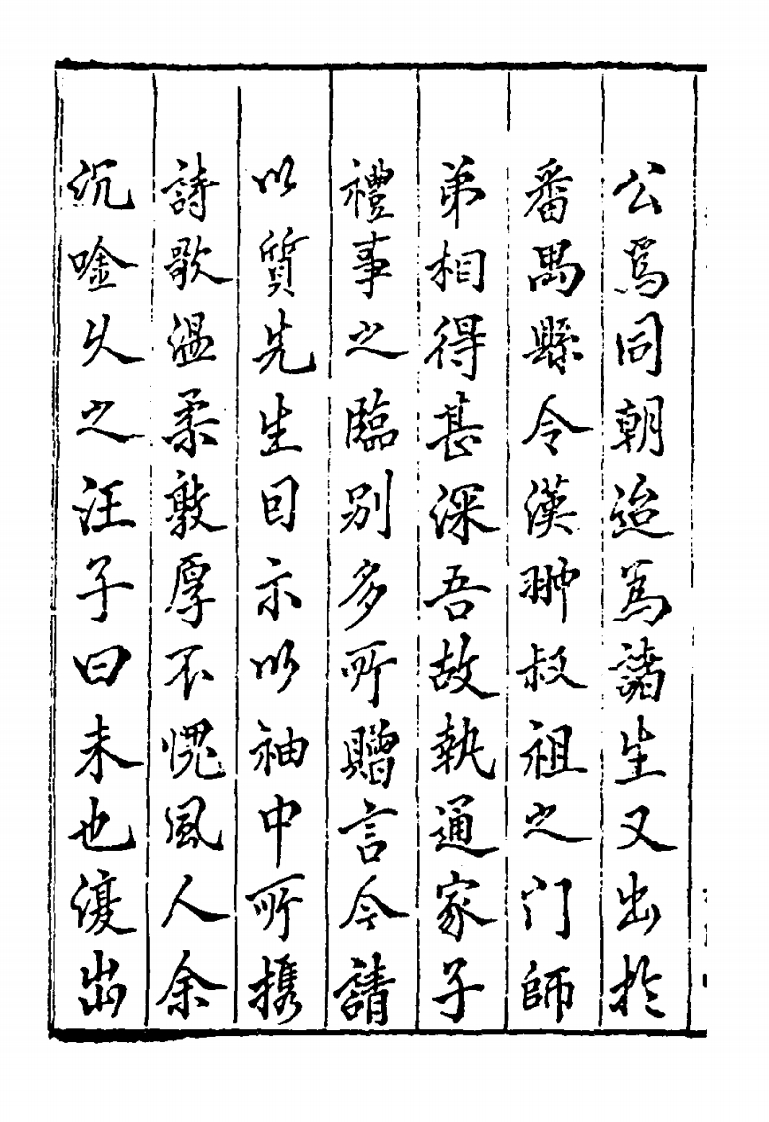 公爲同朝迨爲諸生又出於
番禺縣令漢翀叔祖之门師
弟相得甚深吾故執通家子
禮事之臨别多所贈言今請
以質先生因示以袖中所携
詩歌温柔敦厚不愧風人余
沉唫久之汪子曰未也復出